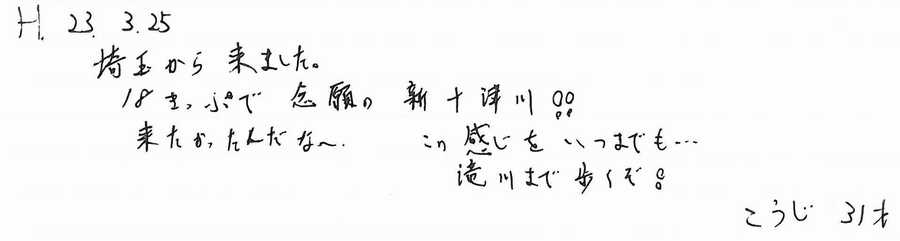 H. 23. 3.25
埼玉から来ました。
18きっぷで 念願の 新十津川!!
来たかったんだな〜. この感じを いつまでも…
滝川まで歩くぞ!
こうじ 31才